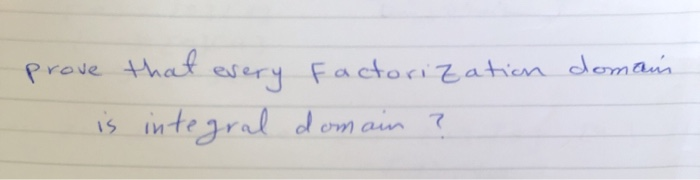 prove that every Factorization domain
is integral domain ?